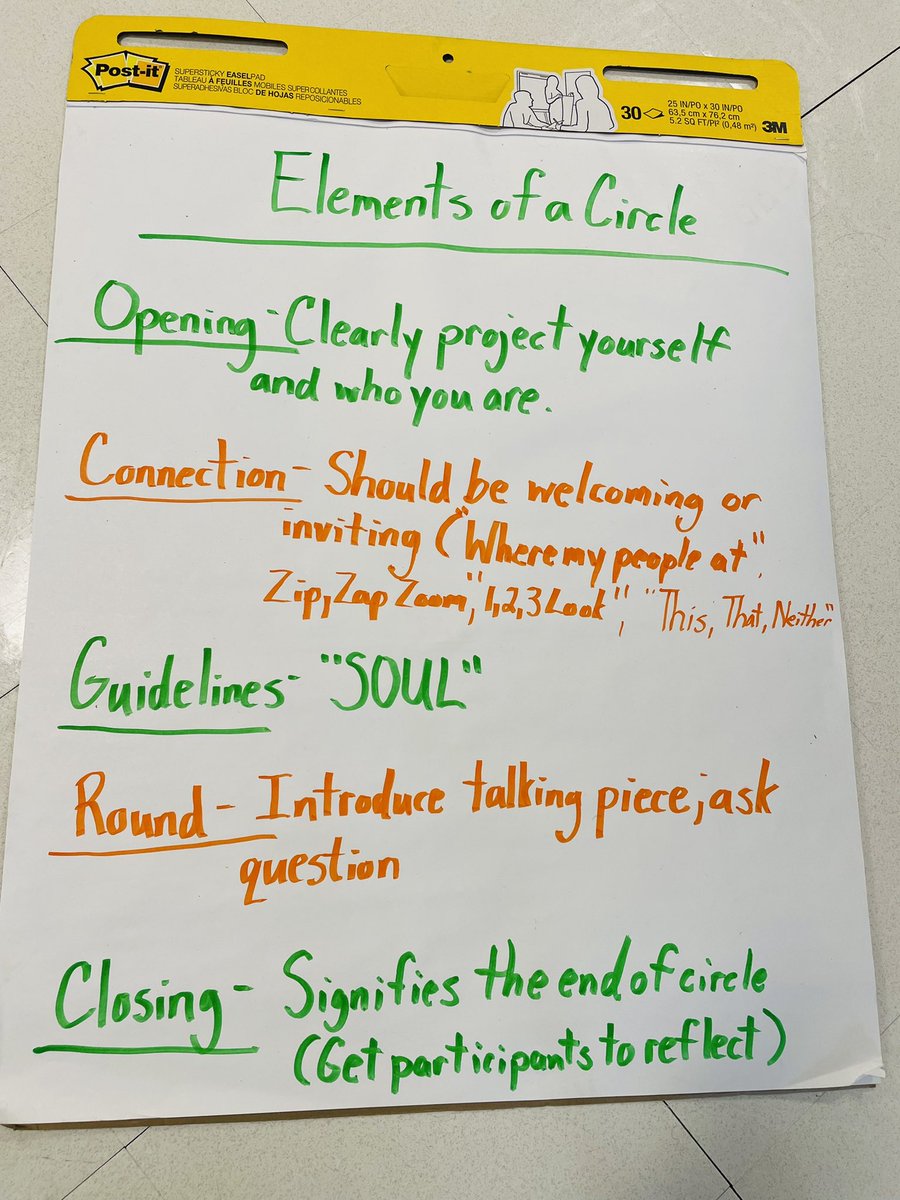 Post-it
SUPERSTICKY EASELPAD
TABLEAU À FEUILLES MOBILES SUPER COLLANTES
SUPERADHESIVAS BLOC DE HOJAS REPOSICIONABLES
30
25 IN/PO x 30 IN/PO
63,5 cm x 76,2 cm
5.2 SQ FT/PI² (0,48 m²)
3M
Elements of a Circle
Opening - Clearly project yourself
and who you are.
Connection - Should be welcoming or
inviting ("Where my people at",
Zip, Zap Zoom", "1,2,3 Look", "This, That, Neither"
Guidelines - "SOUL"
Round - Introduce talking piece; ask
question
Closing - Signifies the end of circle
(Get participants to reflect)